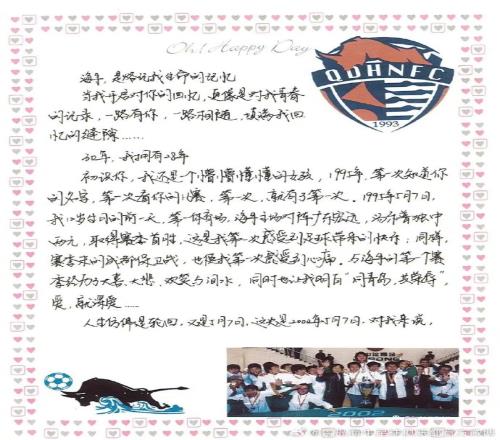 Oh! Happy Day
QDHNFC
1993
海牛，是烙记我生命的记忆
当我开启对你的回忆，更像是对我青春
的记录，一路有你，一路相随，填满我回
忆的缝隙……
30年，我拥有28年
初识你，我还是个懵懵懂懂的女孩，1995年，第一次知道你
的名字，第一次看你的比赛，第一次，就有了第一次。1995年5月7日，
我生日的前一天，第一个看场，海牛主场对阵广东宏远，
取得赛季首胜，这是我第一次感受到足球带来的快乐；同样，
赛季末的成都保卫战，也使我第一次感受到心痛。与海牛的第一个赛
季经历了大喜、大悲，欢笑与泪水，同时也让我明白“同青岛，共荣辱”，
爱，就深度……
人生仿佛是轮回，又是5月7日，这次是2000年5月7日，对我来说，
2002